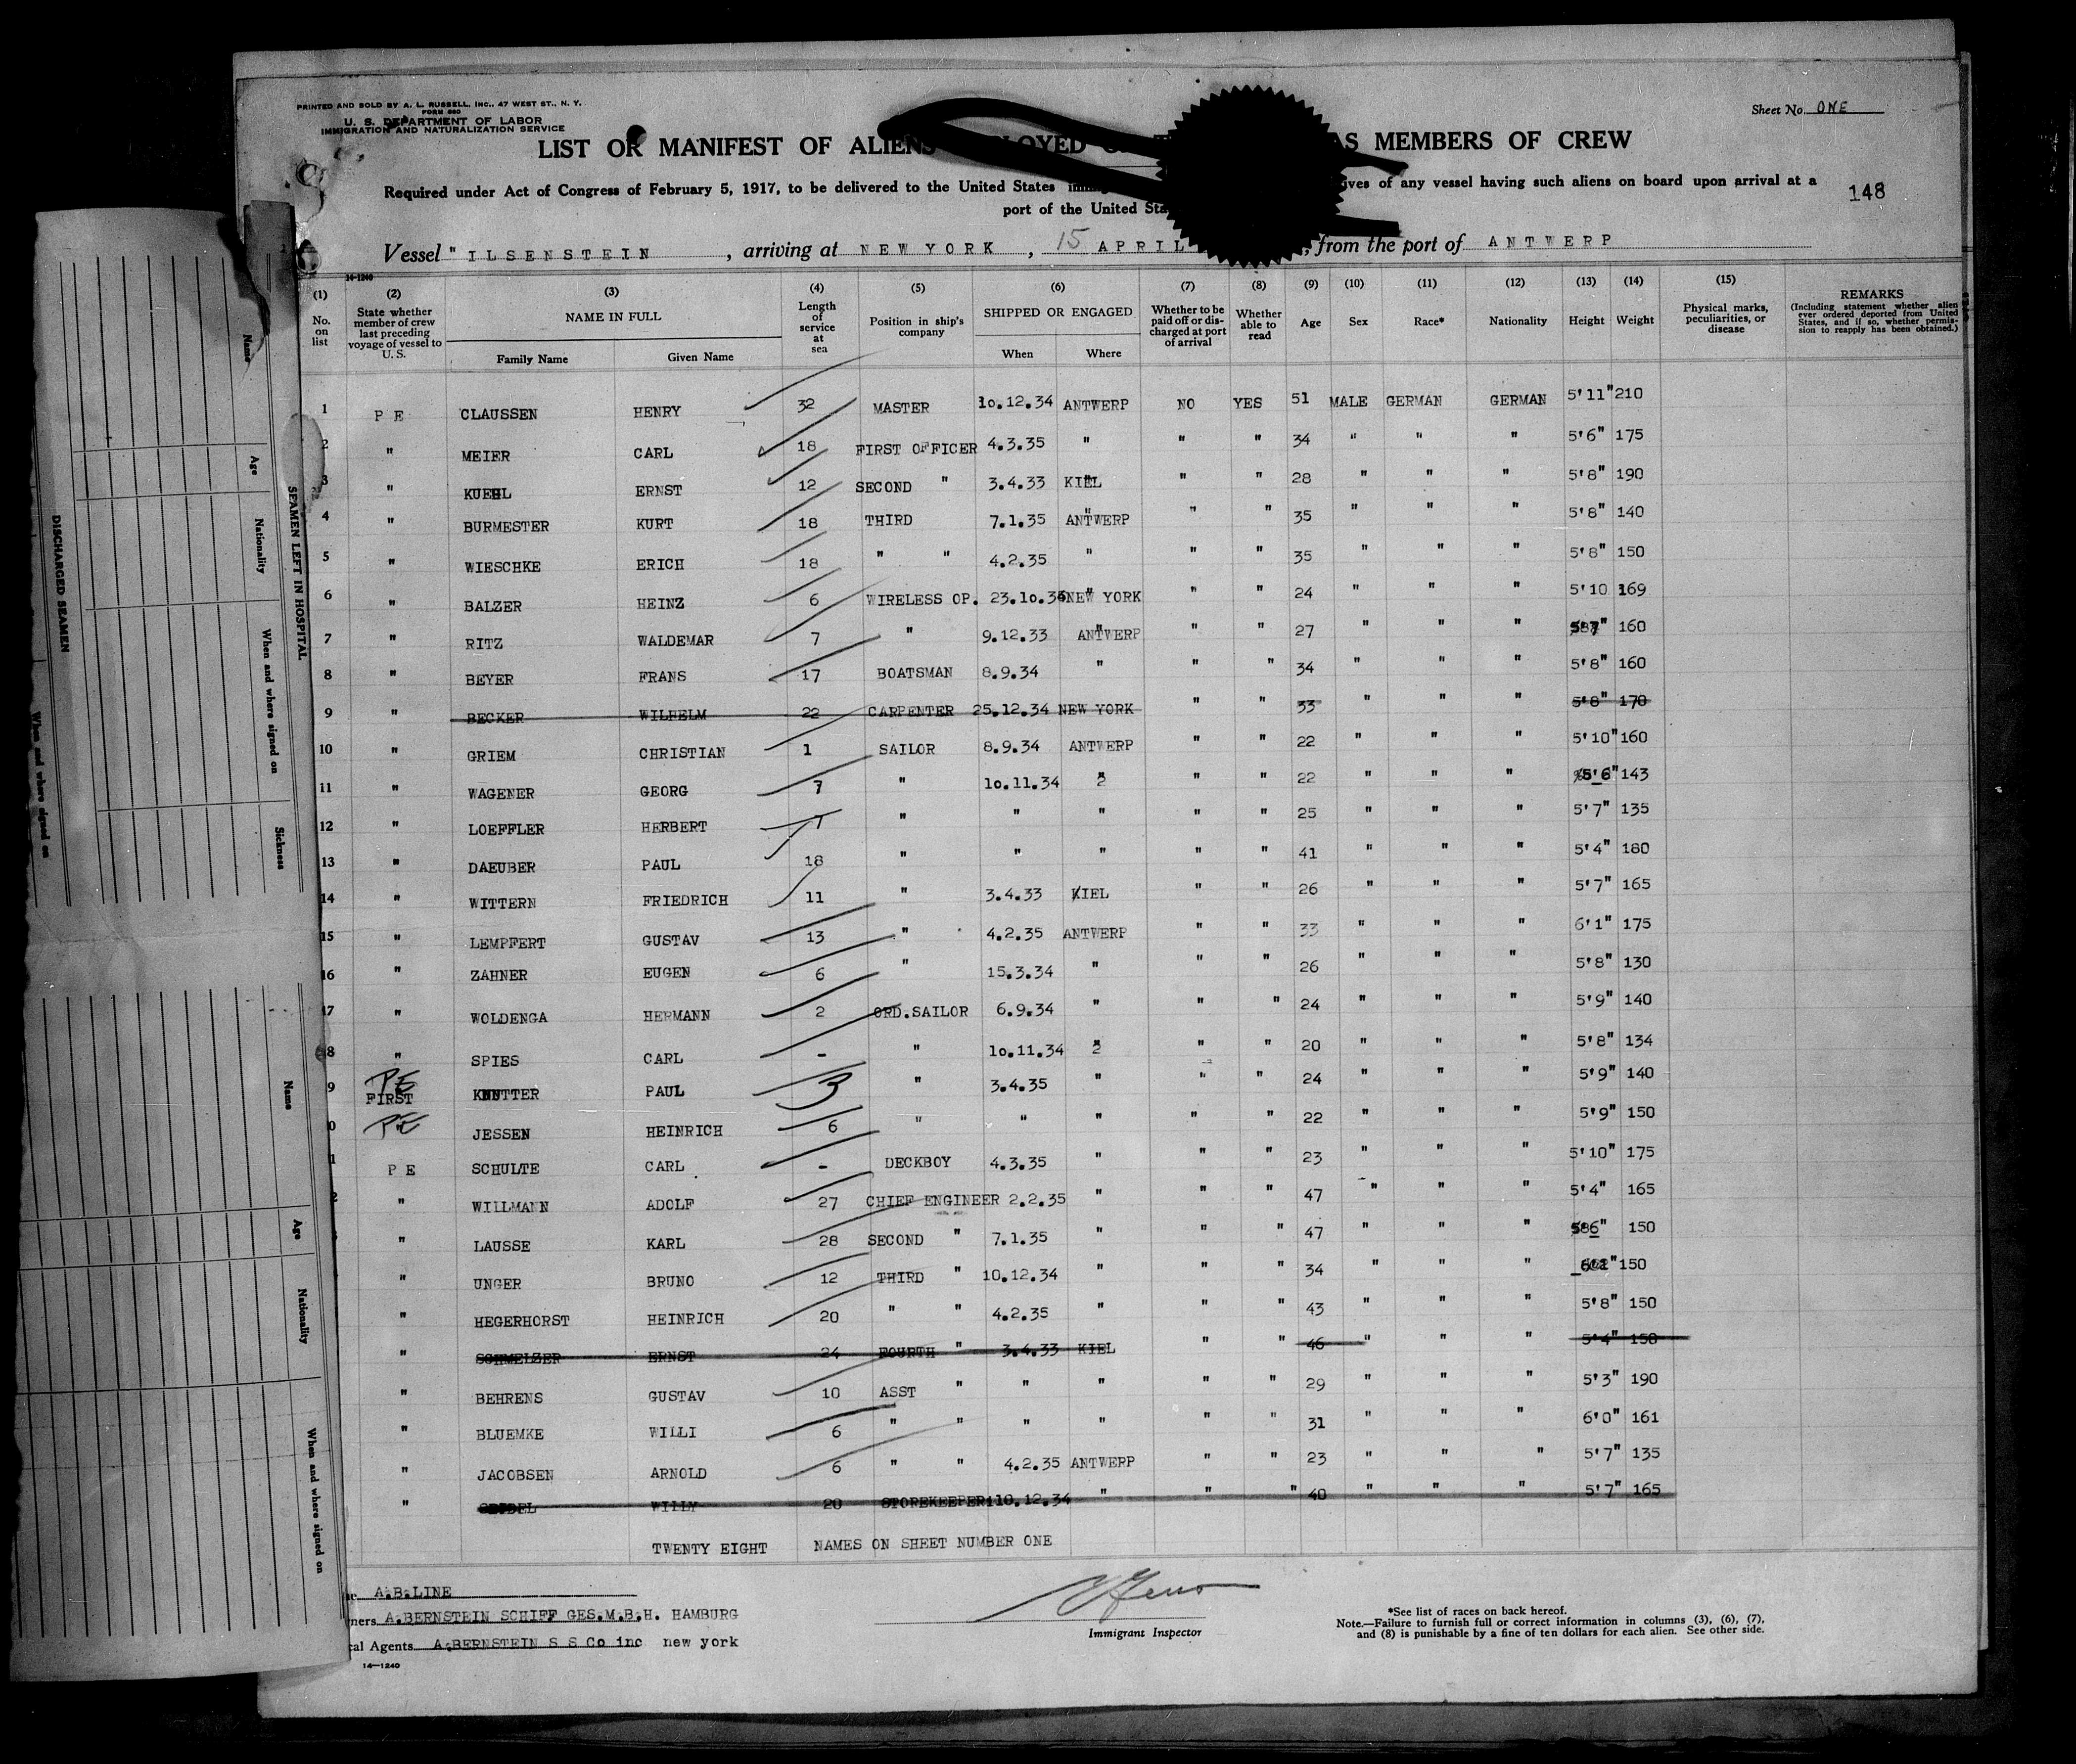 PRINTED AND SOLD BY A. L. RUSSELL, INC., 47 WEST ST., N. Y.
FORM 680
U. S. DEPARTMENT OF LABOR
IMMIGRATION AND NATURALIZATION SERVICE
Sheet No. ONE
LIST OR MANIFEST OF ALIENS AS MEMBERS OF CREW
Required under Act of Congress of February 5, 1917, to be delivered to the United States of any vessel having such aliens on board upon arrival at a
port of the United
148
Vessel " ILSENSTEIN , arriving at NEW YORK , 15 APRIL , from the port of ANTWERP
14-1240
(1) No. on list (2) State whether member of crew last preceding voyage of vessel to U. S. (3) NAME IN FULL Family Name Given Name (4) Length of service at sea (5) Position in ship's company (6) SHIPPED OR ENGAGED When Where (7) Whether to be paid off or discharged at port of arrival (8) Whether able to read (9) Age (10) Sex (11) Race* (12) Nationality (13) Height (14) Weight (15) Physical marks, peculiarities, or disease REMARKS (Including statement whether alien ever ordered deported from United States, and if so, whether permission to reapply has been obtained.)
1 P E CLAUSSEN HENRY 32 MASTER 10.12.34 ANTWERP NO YES 51 MALE GERMAN GERMAN 5'11" 210
2 " MEIER CARL 18 FIRST OFFICER 4.3.35 " " " 34 " " " 5'6" 175
3 " KUEHL ERNST 12 SECOND " 3.4.33 KIEL " " 28 " " " 5'8" 190
4 " BURMESTER KURT 18 THIRD 7.1.35 ANTWERP " " 35 " " " 5'8" 140
5 " WIESCHKE ERICH 18 " " 4.2.35 " " " 35 " " " 5'8" 150
6 " BALZER HEINZ 6 WIRELESS OP. 23.10.34 NEW YORK " " 24 " " " 5'10 169
7 " RITZ WALDEMAR 7 " 9.12.33 ANTWERP " " 27 " " " 5'7" 160
8 " BEYER FRANS 17 BOATSMAN 8.9.34 " " " 34 " " " 5'8" 160
9 " BECKER WILHELM 22 CARPENTER 25.12.34 NEW YORK " " 33 " " " 5'8" 170
10 " GRIEM CHRISTIAN 1 SAILOR 8.9.34 ANTWERP " " 22 " " " 5'10" 160
11 " WAGENER GEORG 7 " 10.11.34 " " " 22 " " " 5'6" 143
12 " LOEFFLER HERBERT 7 " " " " " 25 " " " 5'7" 135
13 " DAEUBER PAUL 18 " " " " " 41 " " " 5'4" 180
14 " WITTERN FRIEDRICH 11 " 3.4.33 KIEL " " 26 " " " 5'7" 165
15 " LEMPFERT GUSTAV 13 " 4.2.35 ANTWERP " " 33 " " " 6'1" 175
16 " ZAHNER EUGEN 6 " 15.3.34 " " " 26 " " " 5'8" 130
17 " WOLDENGA HERMANN 2 ORD.SAILOR 6.9.34 " " " 24 " " " 5'9" 140
8 " SPIES CARL - " 10.11.34 " " " 20 " " " 5'8" 134
9 PE FIRST KNUTTER PAUL 3 " 3.4.35 " " " 24 " " " 5'9" 140
0 PE JESSEN HEINRICH 6 " " " " " 22 " " " 5'9" 150
1 P E SCHULTE CARL - DECKBOY 4.3.35 " " " 23 " " " 5'10" 175
" WILLMANN ADOLF 27 CHIEF ENGINEER 2.2.35 " " " 47 " " " 5'4" 165
" LAUSSE KARL 28 SECOND " 7.1.35 " " " 47 " " " 150
" UNGER BRUNO 12 THIRD " 10.12.34 " " " 34 " " " 150
" HEGERHORST HEINRICH 20 " " 4.2.35 " " " 43 " " " 5'8" 150
" SCHMELZER ERNST 24 FOURTH " 3.4.33 KIEL " " 46 " " " 5'4" 158
" BEHRENS GUSTAV 10 ASST " " " " " 29 " " " 5'3" 190
" BLUEMKE WILLI 6 " " " " " " 31 " " " 6'0" 161
" JACOBSEN ARNOLD 6 " " 4.2.35 ANTWERP " " 23 " " " 5'7" 135
" WILLY 20 STOREKEEPER 10.12.34 " " " 40 " " " 5'7" 165
TWENTY EIGHT NAMES ON SHEET NUMBER ONE
A.B.LINE
A.BERNSTEIN SCHIFF GES.M.B.H. HAMBURG
Agents A.BERNSTEIN S S Co inc new york
14-1240
Immigrant Inspector
*See list of races on back hereof.
Note.—Failure to furnish full or correct information in columns (3), (6), (7),
and (8) is punishable by a fine of ten dollars for each alien. See other side.
SEAMEN LEFT IN HOSPITAL
Name
Age
Nationality
When and where signed on
Sickness
DISCHARGED SEAMEN
When and where signed on
Name
Age
Nationality
When and where signed on